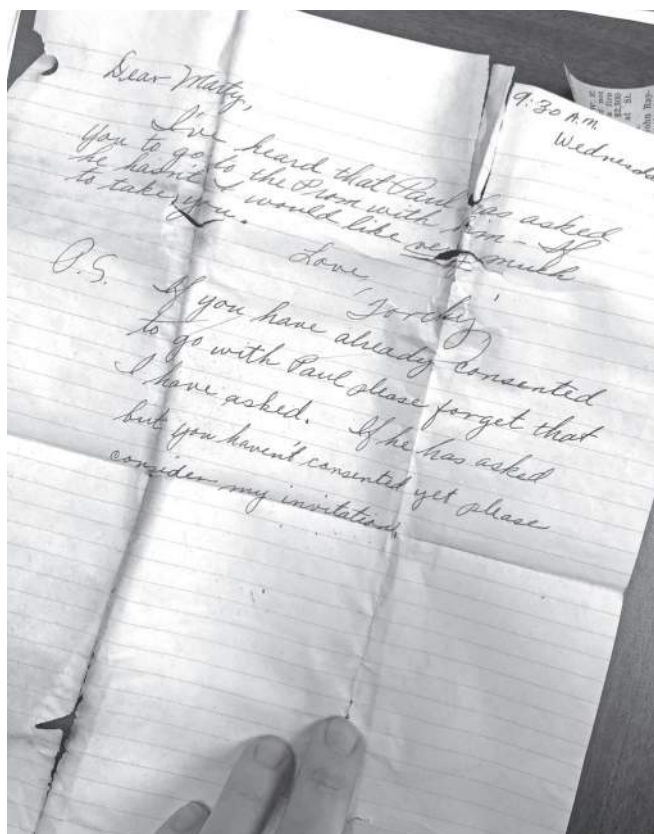 9:30 A.M.
Wednesda
Dear Marty,
I've heard that Paul has asked
you to go to the Prom with him - If
he hasn't I would like very much
to take you.
Love,
Torchy
P.S. If you have already consented
to go with Paul please forget that
I have asked. If he has asked
but you haven't consented yet please
consider my invitation.